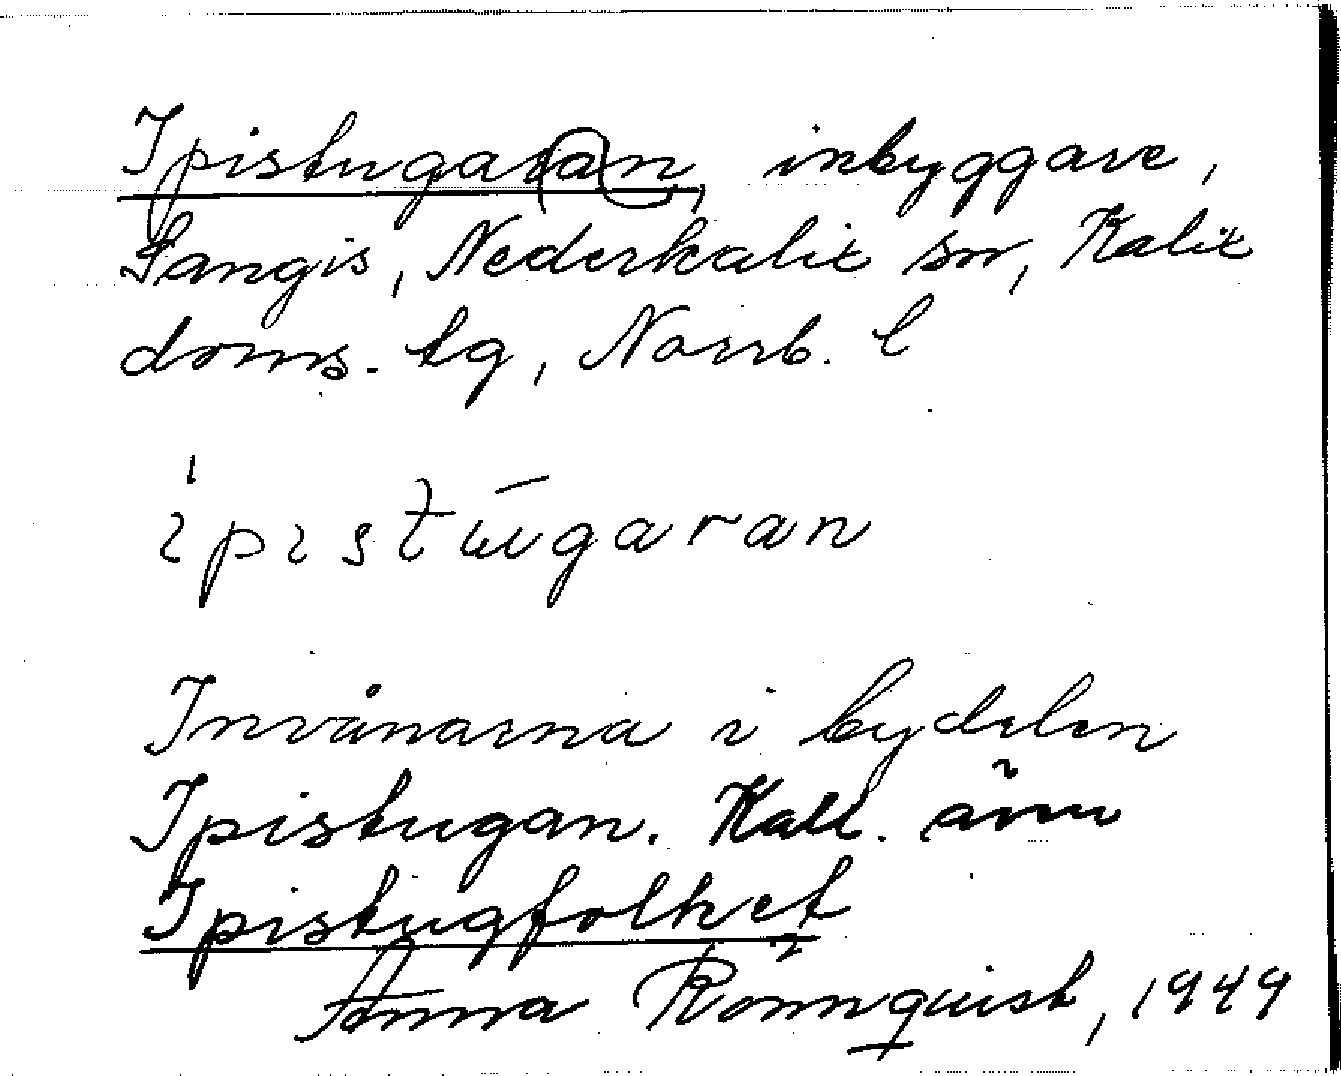 Ipistugaran, inbyggare,
Sangis, Nederkalix sn, Kalix
doms. tg, Norrb. l
ipistūgaran
Invånarna i bydelen
Ipistugan. Kall. även
Ipistugfolket
Anna Rönnquist, 1949